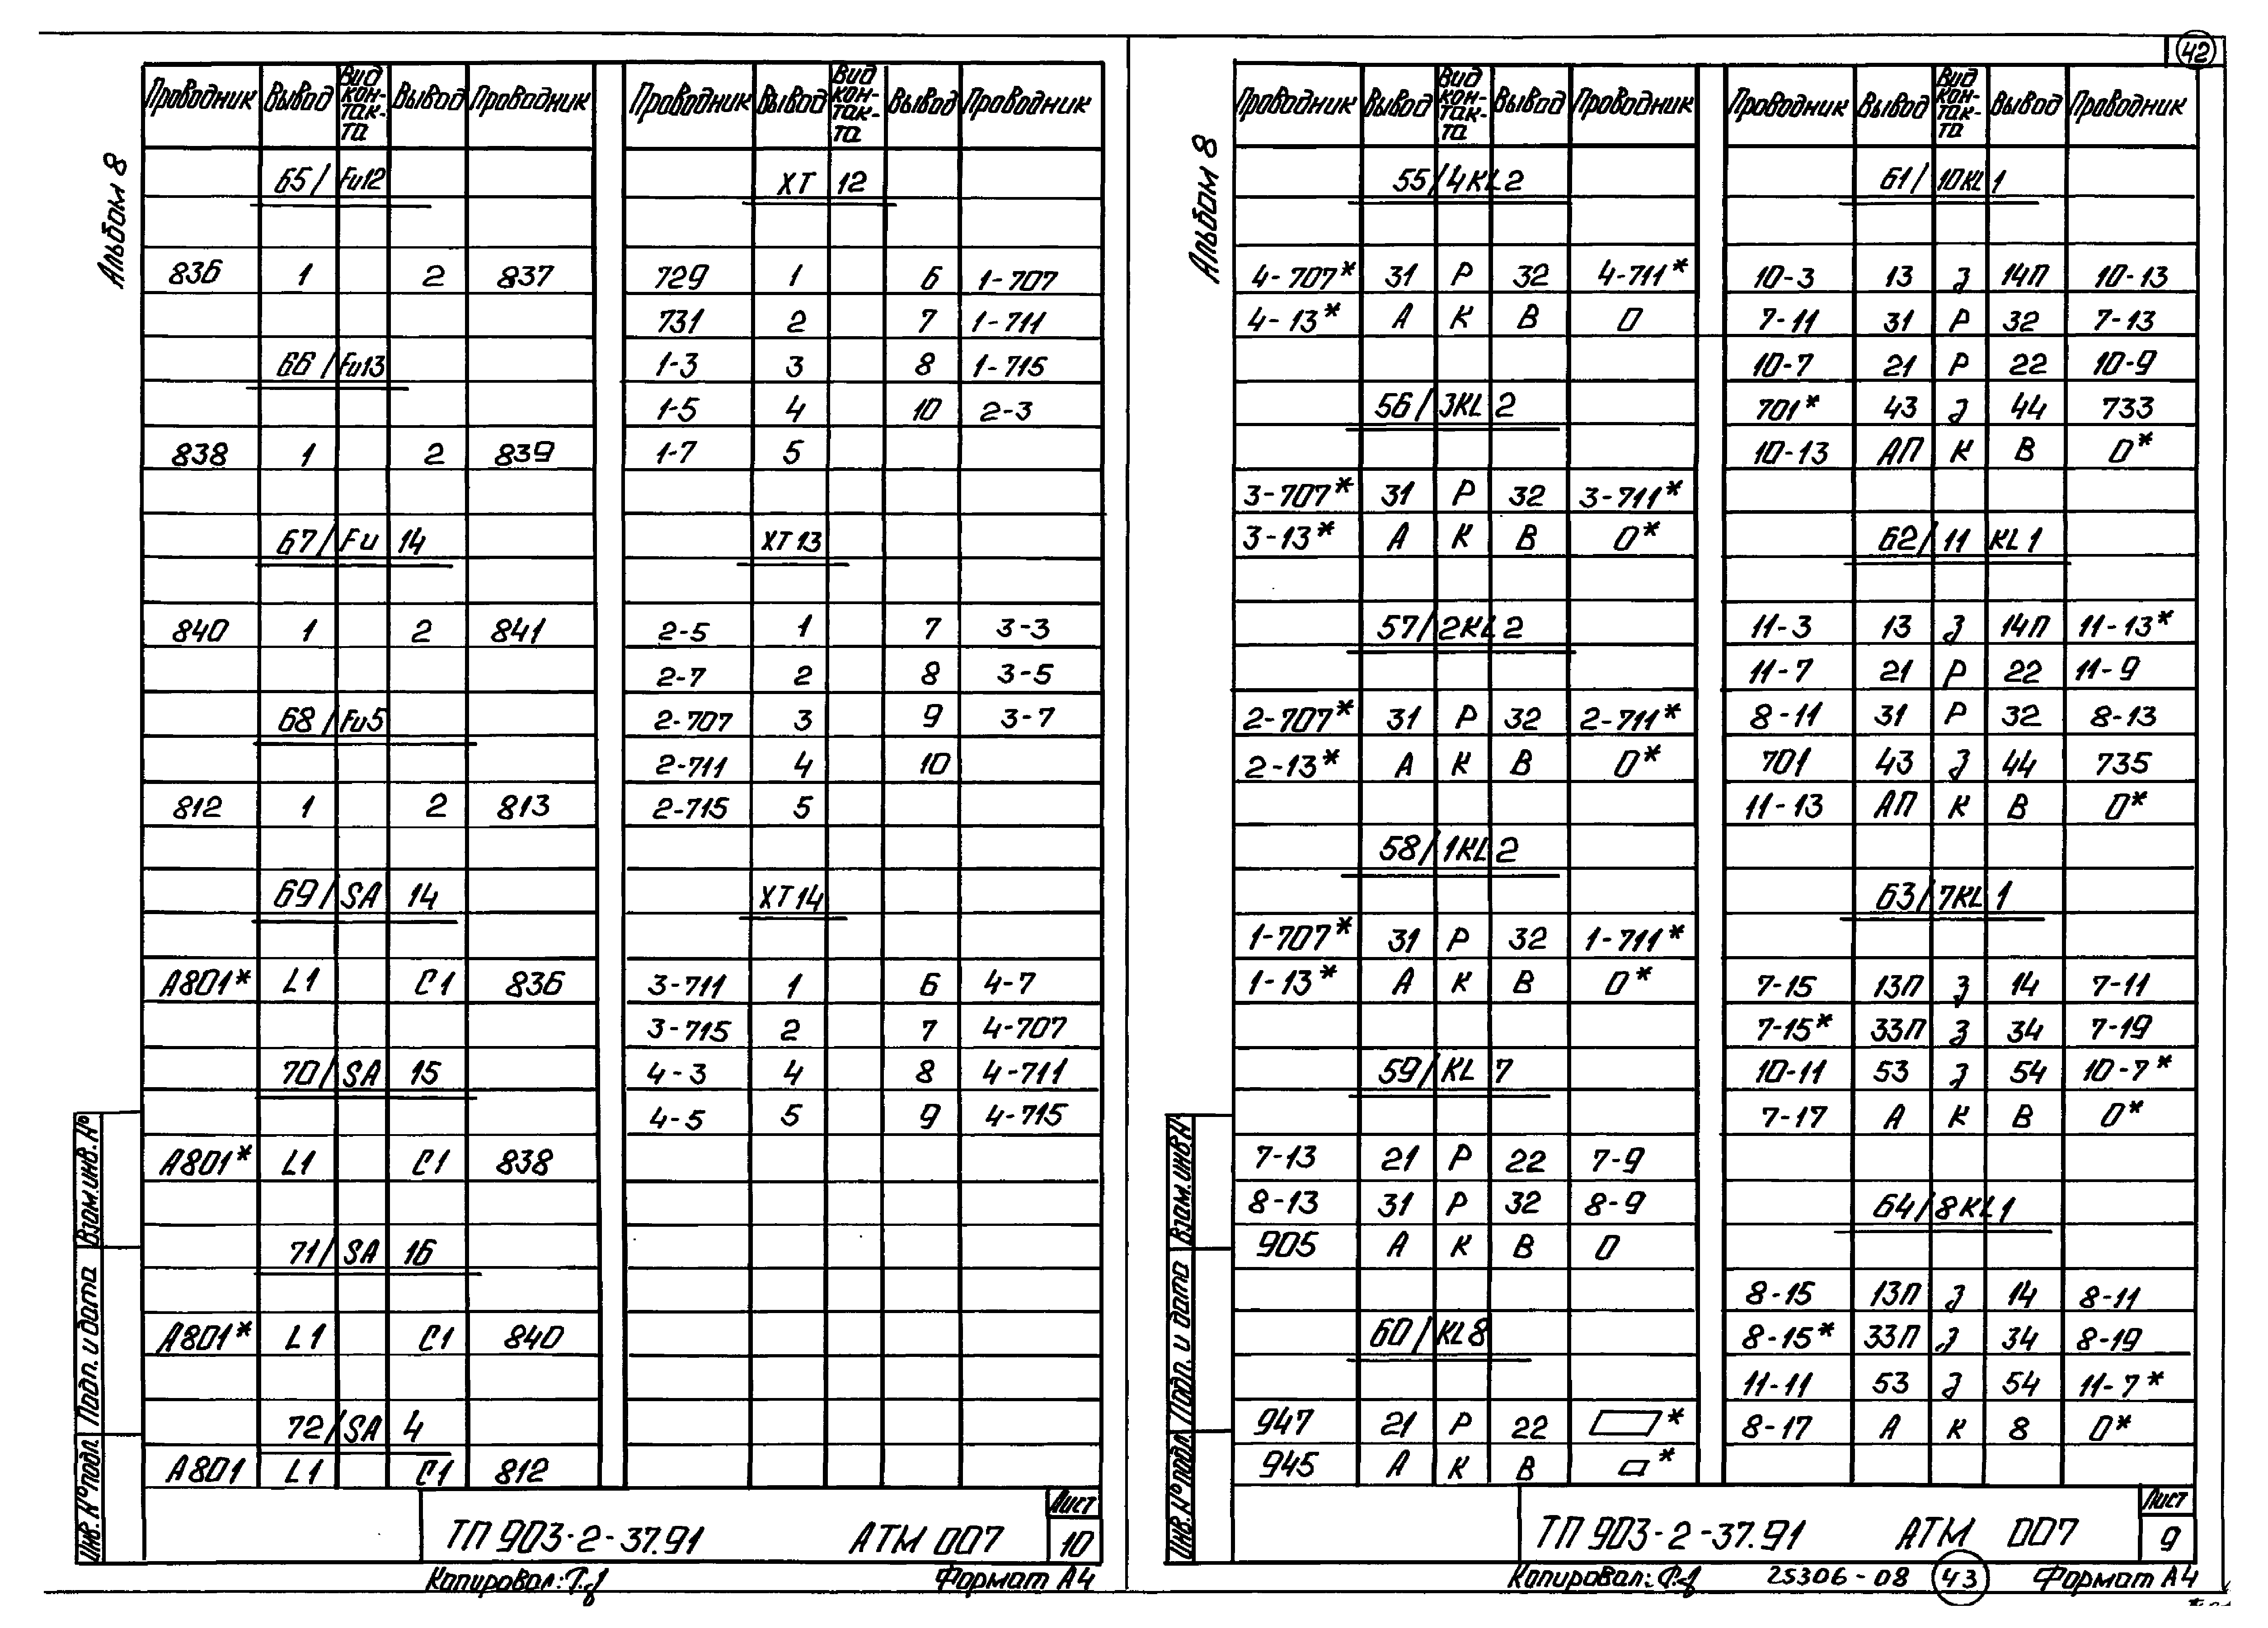 42
Альбом 8
Проводник Вывод Вид кон-так-та Вывод Проводник
65/Fu12
836 1 2 837
66/Fu13
838 1 2 839
67/Fu 14
840 1 2 841
68/Fu5
812 1 2 813
69/SA 14
А801* L1 С1 836
70/SA 15
А801* L1 С1 838
71/SA 16
А801* L1 С1 840
72/SA 4
А801 L1 С1 812
Проводник Вывод Вид кон-так-та Вывод Проводник
ХТ 12
729 1 6 1-707
731 2 7 1-711
1-3 3 8 1-715
1-5 4 10 2-3
1-7 5
ХТ13
2-5 1 7 3-3
2-7 2 8 3-5
2-707 3 9 3-7
2-711 4 10
2-715 5
ХТ14
3-711 1 6 4-7
3-715 2 7 4-707
4-3 4 8 4-711
4-5 5 9 4-715
Взам.инв.№
Подп. и дата
Инв.№подл.
ТП 903-2-37.91 АТМ 007
Лист
10
Копировал:
Формат А4
Альбом 8
Проводник Вывод Вид кон-так-та Вывод Проводник
55/4KL2
4-707* 31 Р 32 4-711*
4-13* А К В 0
56/3KL2
3-707* 31 Р 32 3-711*
3-13* А К В 0*
57/2KL2
2-707* 31 Р 32 2-711*
2-13* А К В 0*
58/1KL2
1-707* 31 Р 32 1-711*
1-13* А К В 0*
59/KL 7
7-13 21 Р 22 7-9
8-13 31 Р 32 8-9
905 А К В 0
60/KL8
947 21 Р 22 *
945 А К В *
Проводник Вывод Вид кон-так-та Вывод Проводник
61/10KL1
10-3 13 З 14П 10-13
7-11 31 Р 32 7-13
10-7 21 Р 22 10-9
701* 43 З 44 733
10-13 АП К В 0*
62/11 KL1
11-3 13 З 14П 11-13*
11-7 21 Р 22 11-9
8-11 31 Р 32 8-13
701 43 З 44 735
11-13 АП К В 0*
63/7KL1
7-15 13П З 14 7-11
7-15* 33П З 34 7-19
10-11 53 З 54 10-7*
7-17 А К В 0*
64/8KL1
8-15 13П З 14 8-11
8-15* 33П З 34 8-19
11-11 53 З 54 11-7*
8-17 А К 8 0*
Взам.инв№
Подп. и дата
Инв.№подл.
ТП 903-2-37.91 АТМ 007
Лист
9
Копировал:
25306-08 43
Формат А4